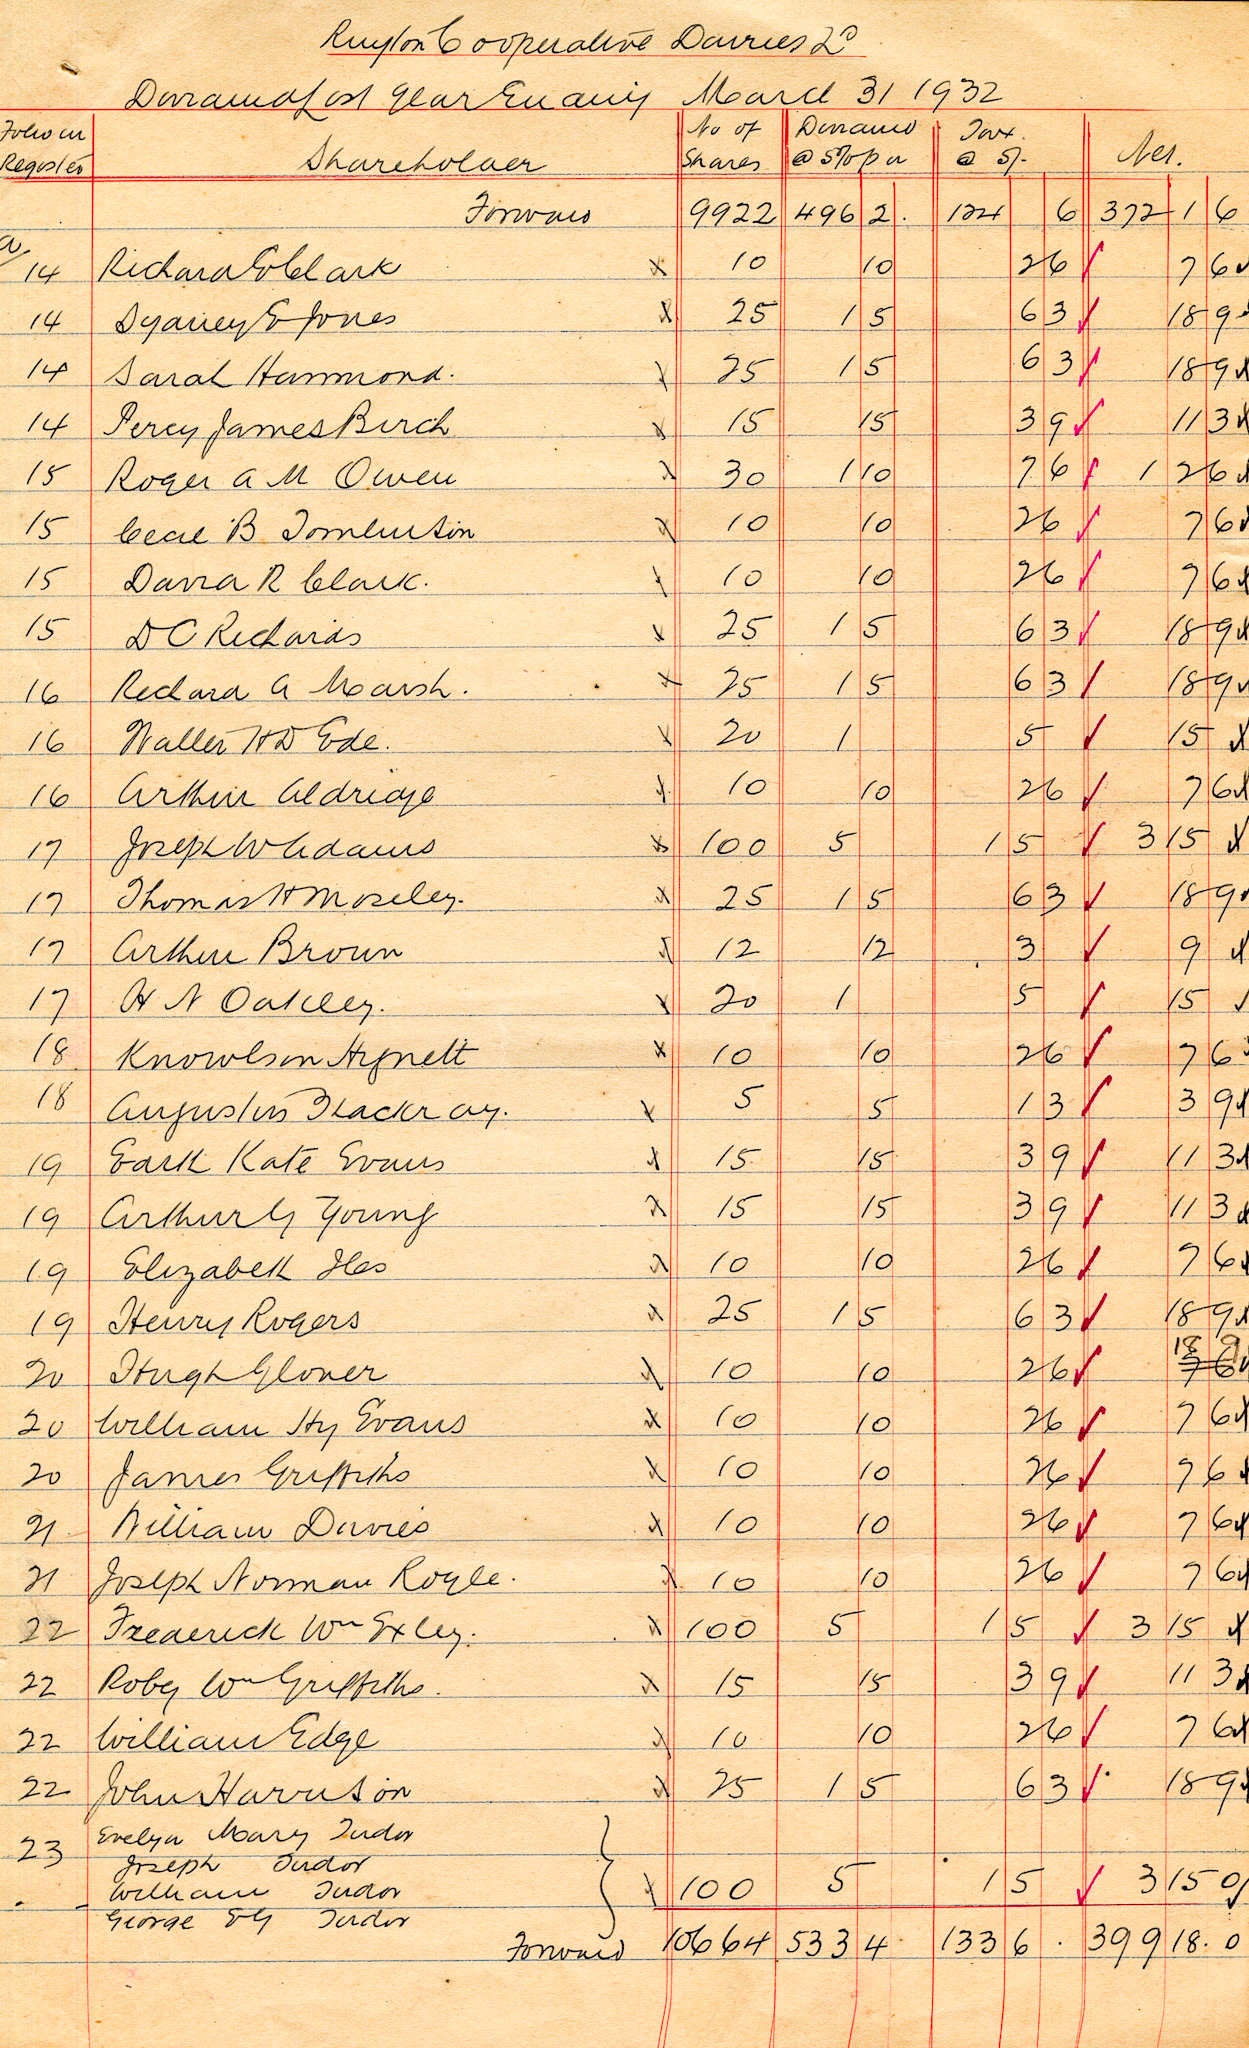 Ruyton Cooperative Dairies Ld
Dividend List Year Ending March 31 1932
Folio in Register Shareholder No of Shares Dividend @ 5% p a Tax @ 5/- Net.
Forward 9922 496 2 . 124 6 372 1 6
14 Richard E Clark x 10 10 2 6 ✓ 7 6
14 Sydney E Jones x 25 1 5 6 3 ✓ 18 9
14 Sarah Hammond. x 25 1 5 6 3 ✓ 18 9
14 Percy James Birch x 15 15 3 9 ✓ 11 3
15 Roger A M Owen x 30 1 10 7 6 ✓ 1 2 6
15 Cecil B Tomlinson x 10 10 2 6 ✓ 7 6
15 David R Clark. x 10 10 2 6 ✓ 7 6
15 D C Richards x 25 1 5 6 3 ✓ 18 9
16 Richard G Marsh. x 25 1 5 6 3 ✓ 18 9
16 Walter H D Ede. x 20 1 5 ✓ 15
16 Arthur Aldridge x 10 10 2 6 ✓ 7 6
17 Joseph W Adams x 100 5 1 5 ✓ 3 15
17 Thomas H Moseley. x 25 1 5 6 3 ✓ 18 9
17 Arthur Brown x 12 12 3 ✓ 9
17 H N Oakley. x 20 1 5 ✓ 15
18 Knowlson Hignett x 10 10 2 6 ✓ 7 6
18 Augustus Thackray. x 5 5 1 3 ✓ 3 9
19 Kate Evans x 15 15 3 9 ✓ 11 3
19 Arthur G Young x 15 15 3 9 ✓ 11 3
19 Elizabeth Iles x 10 10 2 6 ✓ 7 6
19 Henry Rogers x 25 1 5 6 3 ✓ 18 9
18 9
20 Hugh Glover x 10 10 2 6 ✓ 7 6
20 William Hy Evans x 10 10 2 6 ✓ 7 6
20 James Griffiths x 10 10 2 6 ✓ 7 6
21 William Davies x 10 10 2 6 ✓ 7 6
21 Joseph Norman Royle. x 10 10 2 6 ✓ 7 6
22 Frederick Wm Exley. x 100 5 1 5 ✓ 3 15
22 Roby Wm Griffiths. x 15 15 3 9 ✓ 11 3
22 William Edge x 10 10 2 6 ✓ 7 6
22 John Harrison x 25 1 5 6 3 ✓ 18 9
23 Evelyn Mary Tudor
Joseph Tudor
William Tudor x 100 5 1 5 ✓ 3 15 0
George Tudor
Forward 10664 533 4 133 6 . 399 18 . 0